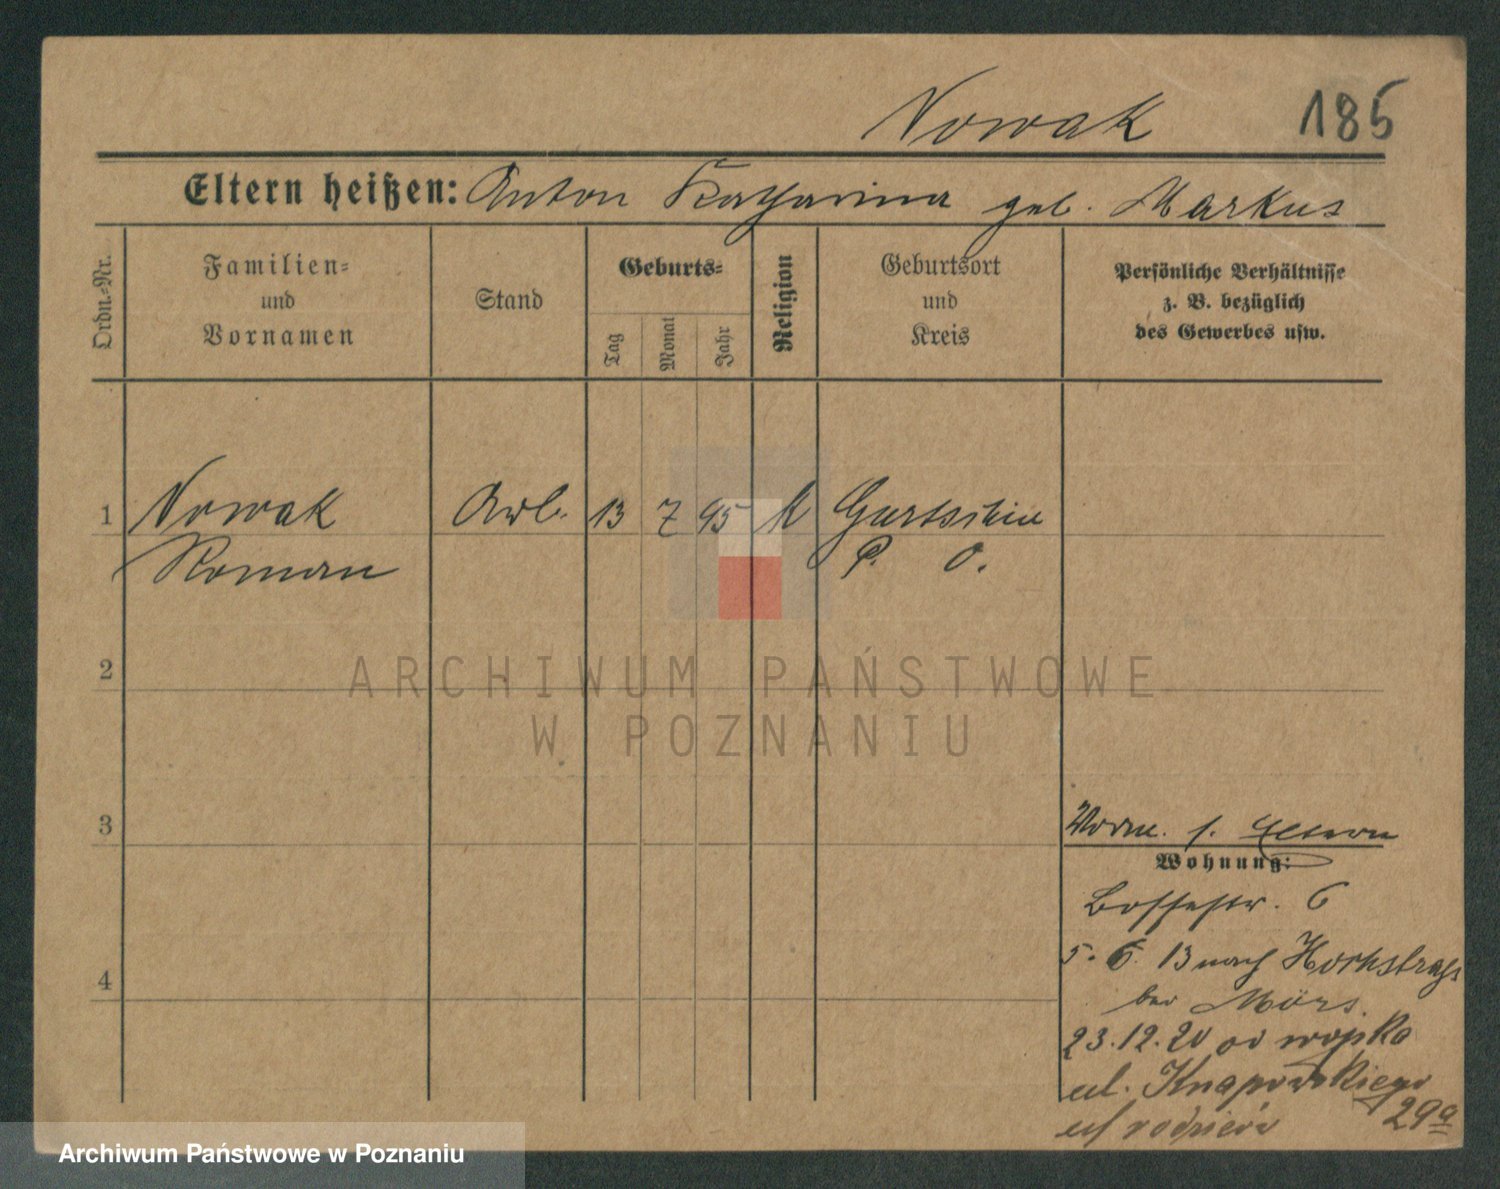 Nowak 185
Eltern heißen: Anton Katharina geb. Markus
Ordn.-Nr.
Familien-
und
Vornamen
Stand
Geburts-
Tag
Monat
Jahr
Religion
Geburtsort
und
Kreis
Persönliche Verhältnisse
z. B. bezüglich
des Gewerbes usw.
1 Nowak Arb. 13 7 95 K Gurtschin
Roman P. O.
2
ARCHIWUM PAŃSTWOWE
W POZNANIU
3
4
s. Eltern
Wohnung:
6
5. 6. 13 nach
bei Mörs.
23.12.20 od wojska
ul. Knapowskiego
29a
rodziców
Archiwum Państwowe w Poznaniu